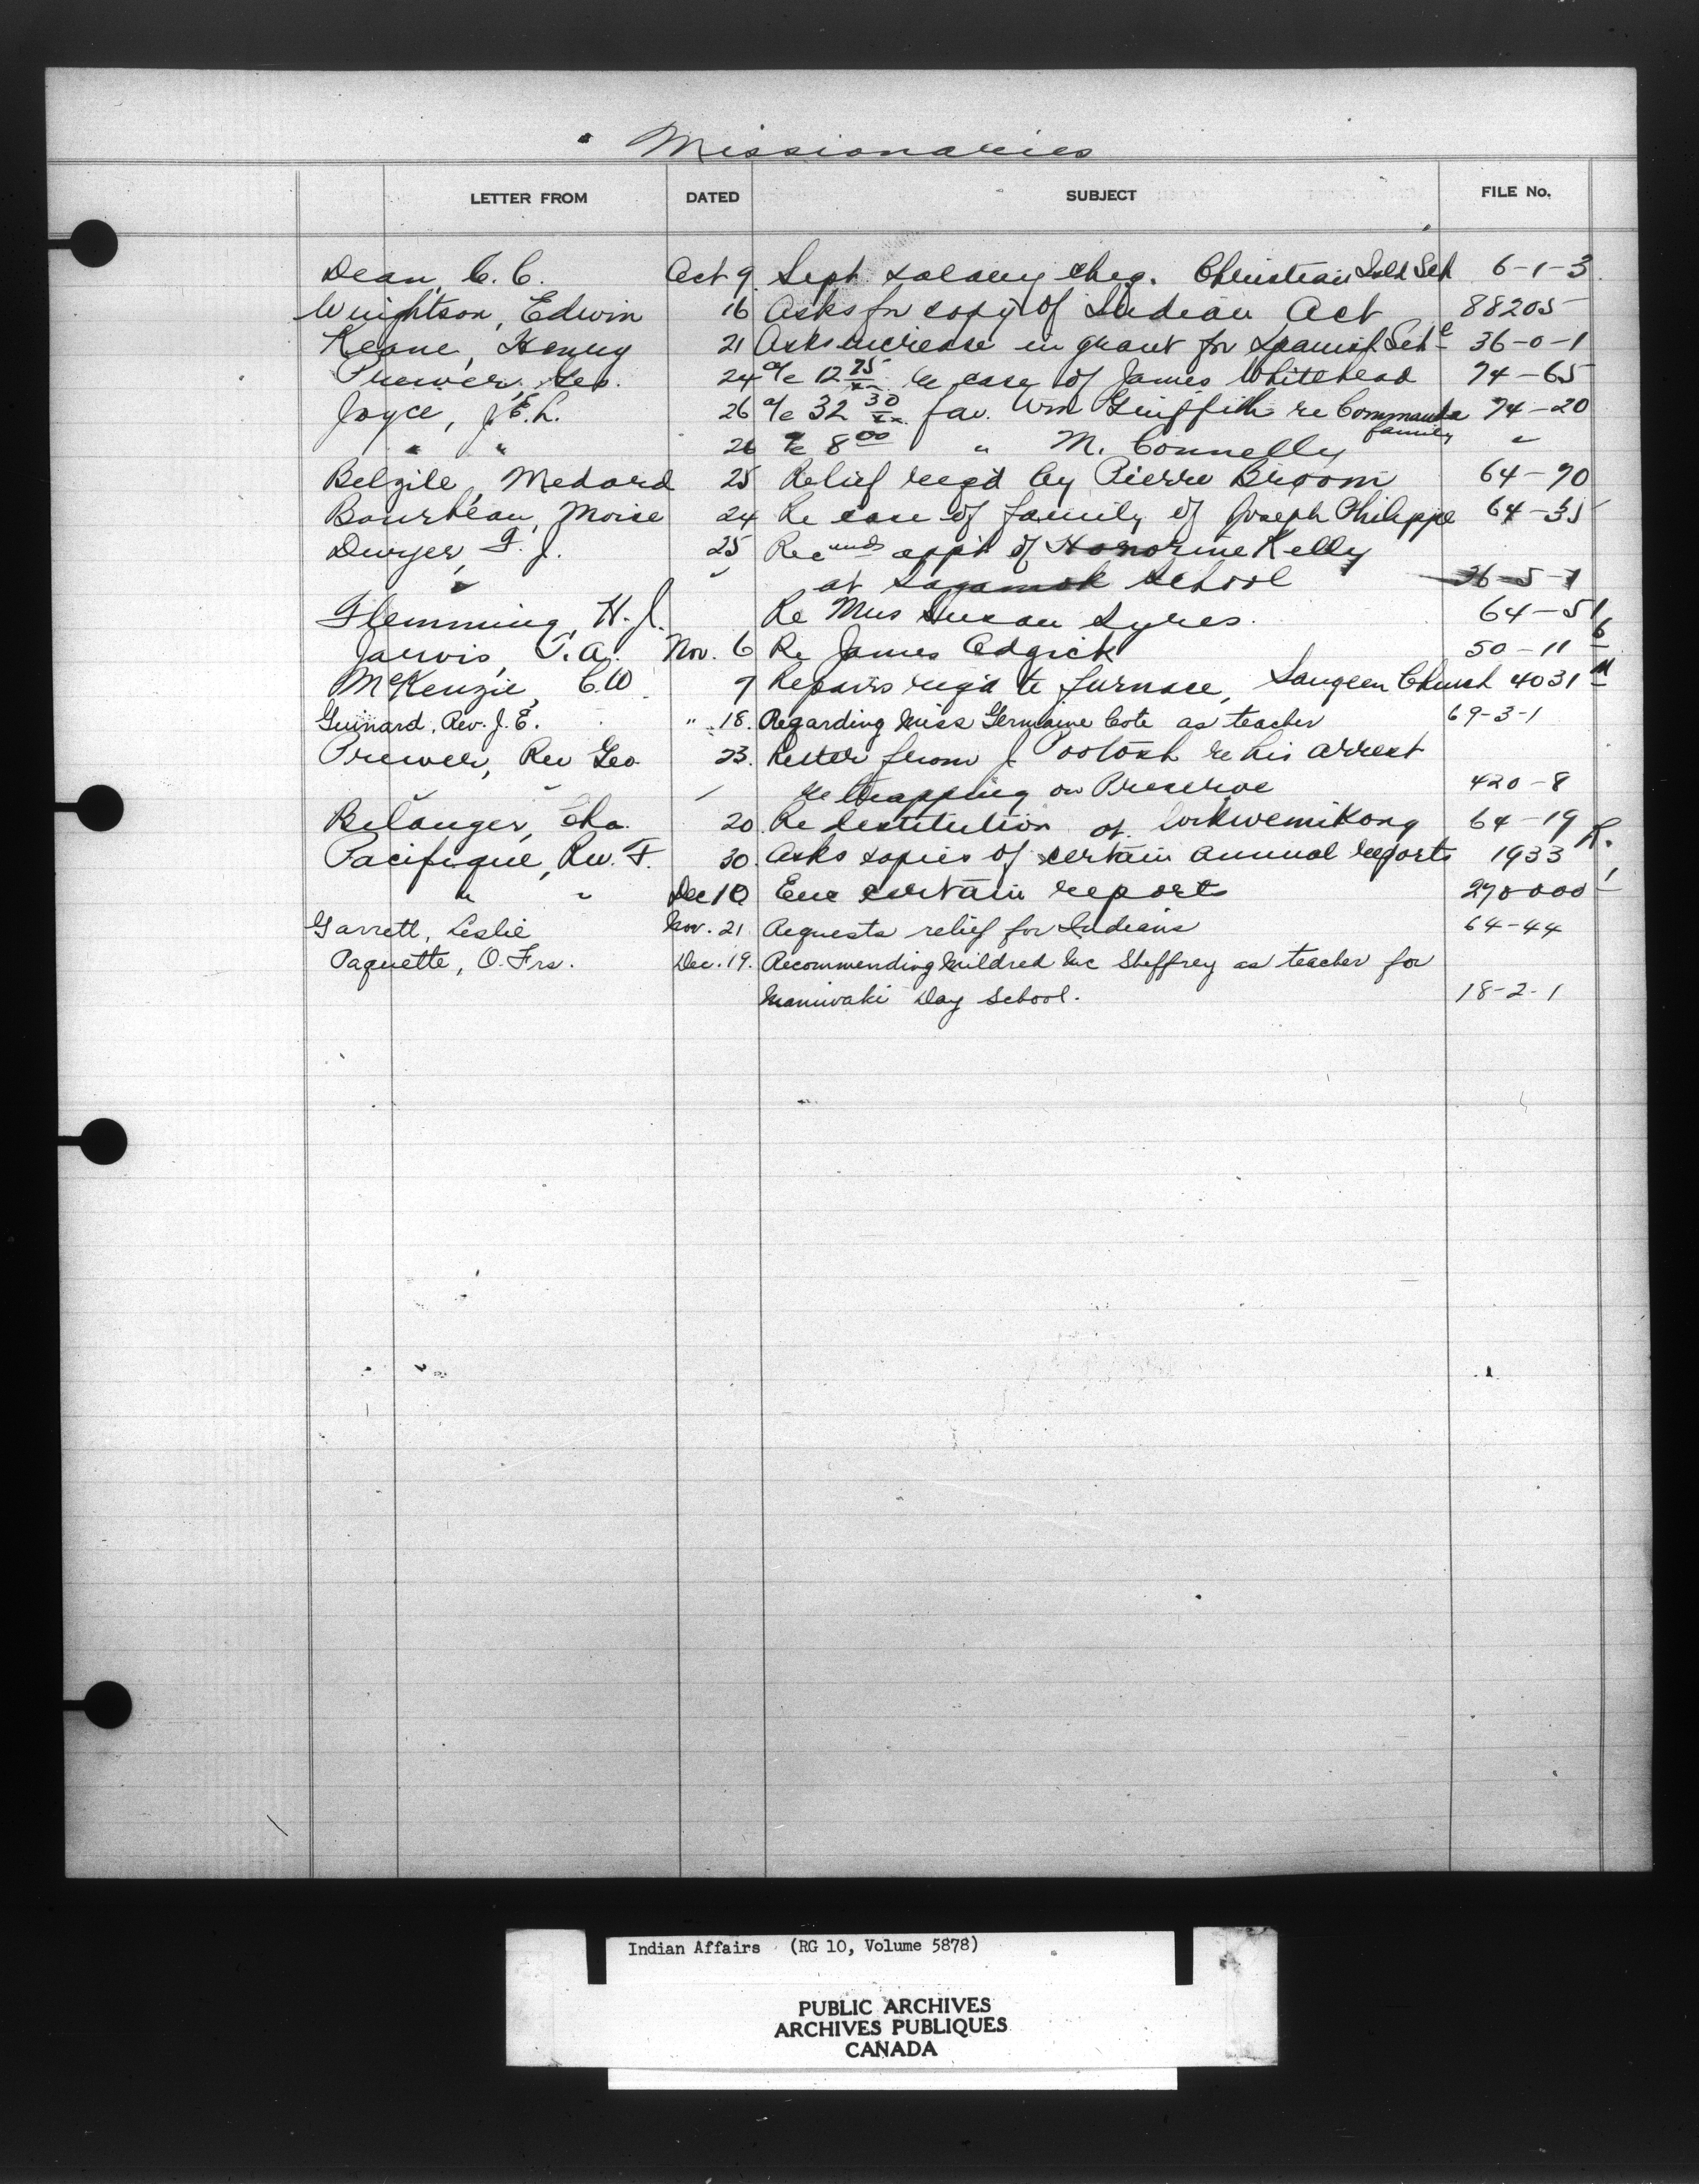 Missionaries
LETTER FROM DATED SUBJECT FILE No.
Dean, C. C. Oct 9 Sept salary cheq. Christian Isld Sch 6-1-3
Wrightson, Edwin 16 Asks for copy of Indian Act 88205
Keane, Henry 21 Asks increase in grant for Spanish Sch 36-0-1
Prewer, Geo. 24 a/c 12 75/xx re case of James Whitehead 74-65
Joyce, J. E. L. 26 a/c 32 30/xx fav. Wm Griffith re Commanda family 74-20
" " 26 a/c 8 00 " M. Connelly "
Belzile, Medard 25 Relief req'd by Pierre Broom 64-90
Bourbeau, Moise 24 Re case of family of Joseph Philippe 64-35
Dwyer, F. J. 25 Recmnds app't of Honorine Kelly
" " at Sagamok School 36-5-1
Flemming, H. J. Re Mrs Susan Syres. 64-51
Jarvis, T. A. Nov. 6 Re James Adgick 50-11 6
McKenzie, C. W. 7 Repairs req'd to furnace, Saugeen Church 4031
Guinard, Rev. J. E. " 18. Regarding Miss Germaine Cote as teacher 69-3-1
Prewer, Rev Geo 23. Letter from J. Pootosh re his arrest
" " " re trapping on Preserve 420-8
Belanger, Cha. 20. Re destitution at Wikwemikong 64-19
Pacifique, Rev. F. 30. Asks copies of certain annual reports 1933 R.
" " Dec 10 Enc certain reports 270000-1
Garrett, Leslie Nov. 21 Requests relief for Indians 64-44
Paquette, O. Frs. Dec. 19. Recommending Mildred Mc Sheffrey as teacher for
Maniwaki Day School. 18-2-1
Indian Affairs (RG 10, Volume 5878)
PUBLIC ARCHIVES
ARCHIVES PUBLIQUES
CANADA